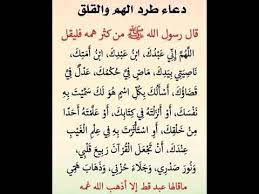 دعاء طرد الهم والقلق
قال رسول الله ﷺ من كثر همه فليقل
اللَّهُمَّ إِنِّي عَبْدُكَ، ابْنُ عَبْدِكَ، ابْنُ أَمَتِكَ،
نَاصِيَتِي بِيَدِكَ، مَاضٍ فِيَّ حُكْمُكَ، عَدْلٌ فِيَّ
قَضَاؤُكَ، أَسْأَلُكَ بِكُلِّ اسْمٍ هُوَ لَكَ سَمَّيْتَ بِهِ
نَفْسَكَ، أَوْ أَنْزَلْتَهُ فِي كِتَابِكَ، أَوْ عَلَّمْتَهُ أَحَدًا
مِنْ خَلْقِكَ، أَوِ اسْتَأْثَرْتَ بِهِ فِي عِلْمِ الْغَيْبِ
عِنْدَكَ، أَنْ تَجْعَلَ الْقُرْآنَ رَبِيعَ قَلْبِي،
وَنُورَ صَدْرِي، وَجَلَاءَ حُزْنِي، وَذَهَابَ هَمِّي
ماقالها عبد قط إلا أذهب الله غمه